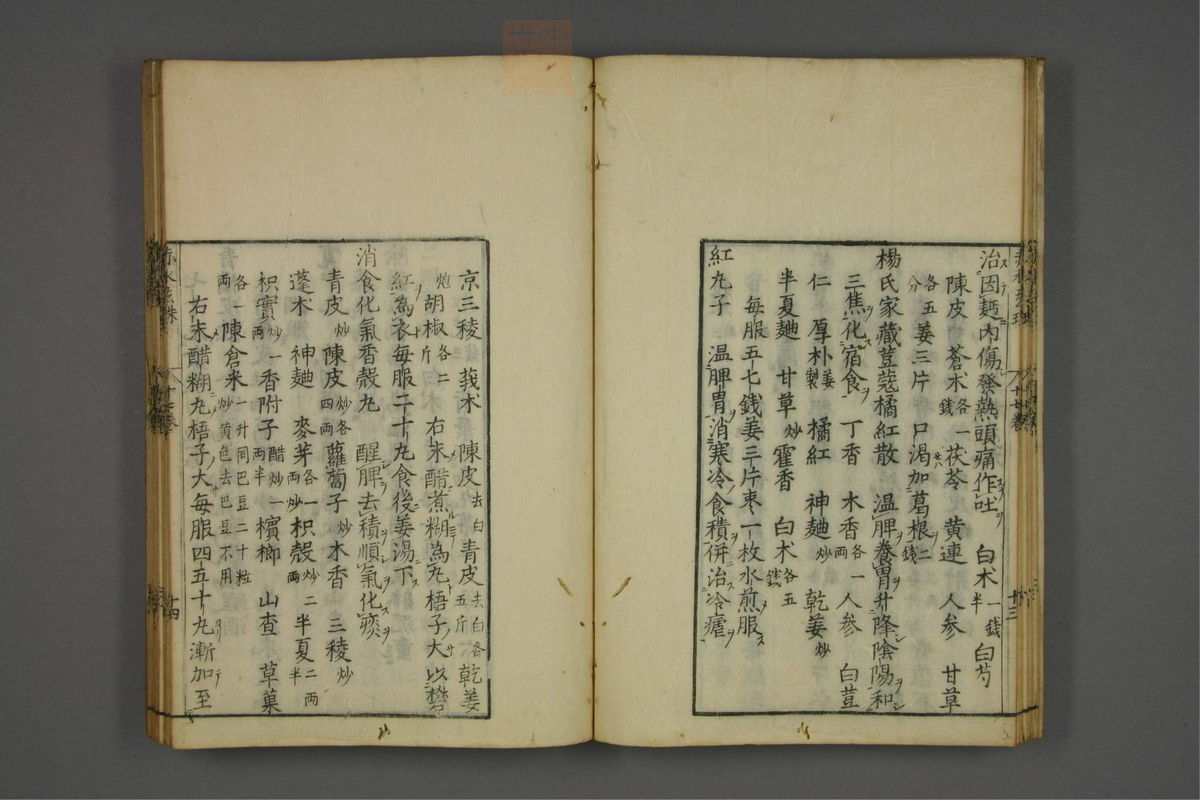 治因麪內傷發熱頭痛作吐 白术一錢半 白芍
陳皮 蒼术各一錢 茯苓 黃連 人參 甘草
各五分 姜三片 口渴加葛根二錢
楊氏家藏荳蔻橘紅散 溫脾養胃升降陰陽和
三焦化宿食 丁香 木香各一兩 人參 白荳
仁 厚朴姜製 橘紅 神麯炒 乾姜炒
半夏麯 甘草炒 藿香 白术各五錢
每服五七錢姜三片枣一枚水煎服
紅丸子 溫脾胃消寒冷食積併治冷瘧
京三稜 莪术 陳皮去白 青皮去白各五斤 乾姜
炮 胡椒各二斤 右末醋煮糊為丸梧子大以礬
紅為衣每服二十丸食後姜湯下
消食化氣香殼丸 醒脾去積順氣化痰
青皮炒 陳皮炒各四兩 蘿蔔子炒 木香 三稜炒
蓬术 神麯 麥芽各一兩炒 枳殼炒二兩 半夏二兩半
枳實炒一兩 香附子醋炒一兩半 檳榔 山查 草菓
各一兩 陳倉米一升同巴豆二十粒炒黃色去巴豆不用
右末醋糊丸梧子大每服四五十丸漸加至
赤水玄珠 十七卷 十四
十七卷 十三